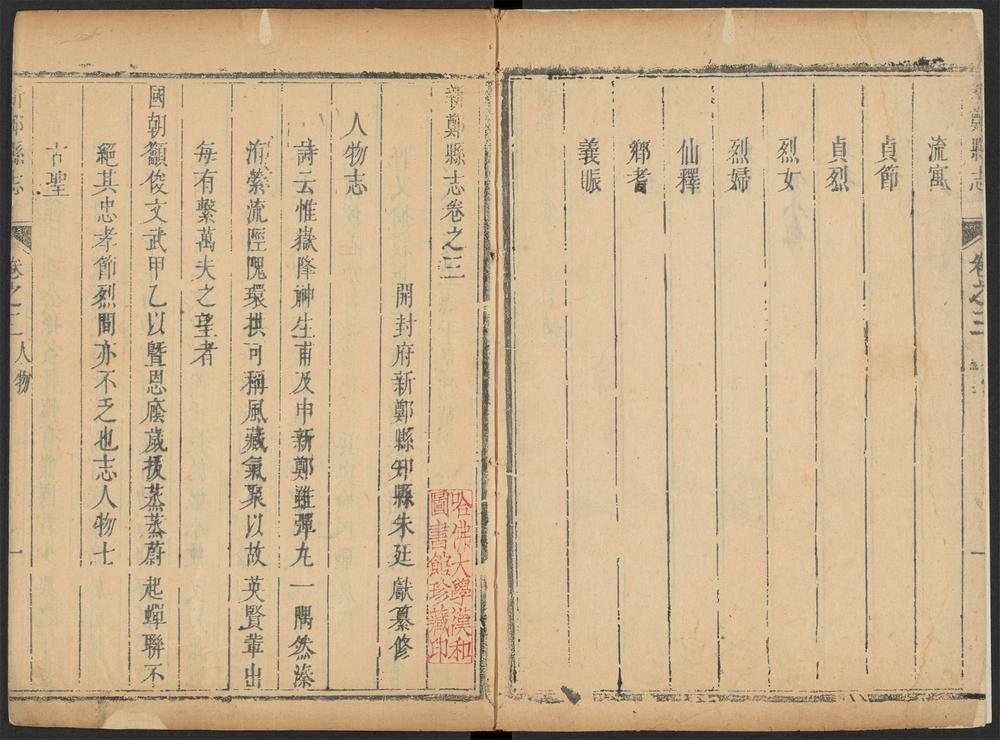 新鄭縣志
卷之三
流寓
貞節
貞烈
烈女
烈婦
仙釋
鄉耆
義賑
一
新鄭縣志卷之三
開封府新鄭縣知縣朱廷獻纂修
哈佛大學漢和
圖書館珍藏印
人物志
詩云惟嶽降神生甫及申新鄭雖彈丸一隅然溱
洧縈流陘隗環拱可稱風藏氣聚以故英賢輩出
每有繫萬夫之望者
國朝籲俊文武甲乙以暨恩廕歲拔蒸蒸蔚起蟬聯不
絕其忠孝節烈間亦不乏也志人物士
古聖
新鄭縣志
卷之三
人物
一